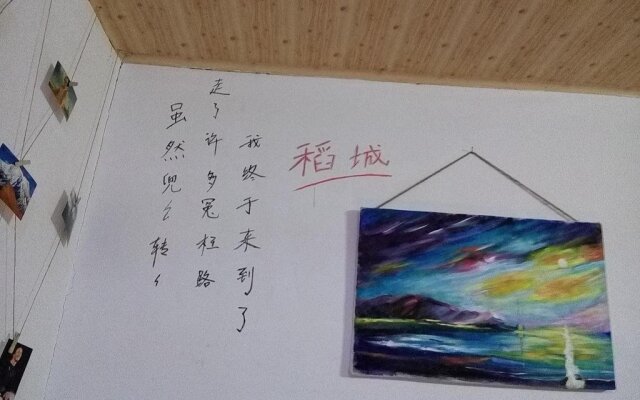 虽然兜々转々
走了许多冤枉路
我终于来到了
稻城